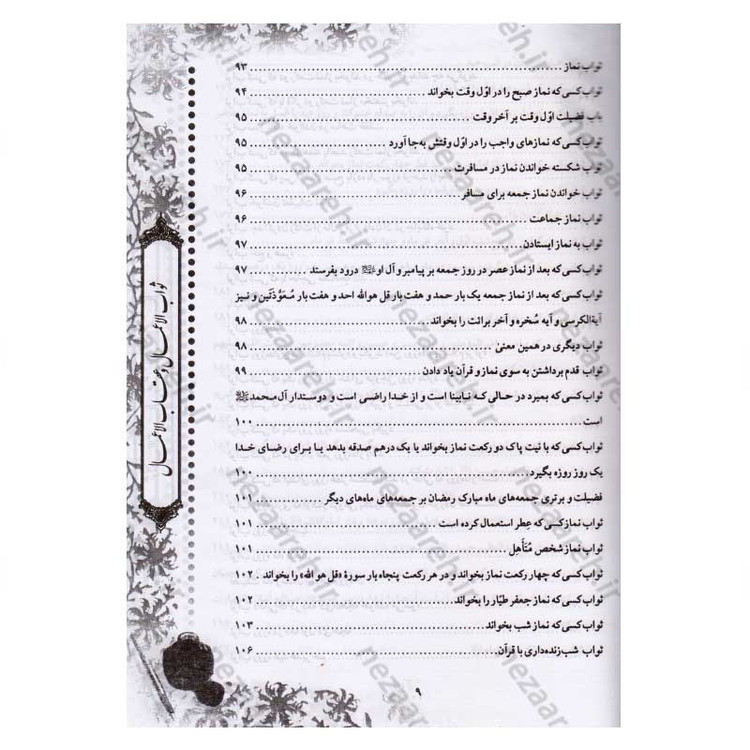 ثواب نماز ........ ۹۳
ثواب کسی که نماز صبح را در اوّل وقت بخواند ........ ۹۴
باب فضیلت اوّل وقت بر آخر وقت ........ ۹۵
ثواب کسی که نمازهای واجب را در اوّل وقتش به‌جا آورد ........ ۹۵
ثواب شکسته خواندن نماز در مسافرت ........ ۹۵
ثواب خواندن نماز جمعه برای مسافر ........ ۹۶
ثواب نماز جماعت ........ ۹۶
ثواب به نماز ایستادن ........ ۹۷
ثواب کسی که بعد از نماز عصر در روز جمعه بر پیامبر و آل او ﷺ درود بفرستد ........ ۹۷
ثواب کسی که بعد از نماز جمعه یک بار حمد و هفت بار قل هوالله احد و هفت بار مُعَوَّذَتَین و نیز
آیةالکرسی و آیه سُخره و آخر برائت را بخواند ........ ۹۸
ثواب دیگری در همین معنیٰ ........ ۹۸
ثواب قدم برداشتن به سوی نماز و قرآن یاد دادن ........ ۹۹
ثواب کسی که بمیرد در حالی که نابینا است و از خدا راضی است و دوستدار آل محمد ﷺ
است ........ ۱۰۰
ثواب کسی که با نیت پاک دو رکعت نماز بخواند یا یک درهم صدقه بدهد یا برای رضای خدا
یک روز روزه بگیرد ........ ۱۰۰
فضیلت و برتری جمعه‌های ماه مبارک رمضان بر جمعه‌های ماه‌های دیگر ........ ۱۰۱
ثواب نماز کسی که عِطر استعمال کرده است ........ ۱۰۱
ثواب نماز شخص مُتَأَهِل ........ ۱۰۱
ثواب کسی که چهار رکعت نماز بخواند و در هر رکعت پنجاه بار سورهٔ «قل هو الله» را بخواند . ۱۰۲
ثواب کسی که نماز جعفر طیّار را بخواند ........ ۱۰۲
ثواب کسی که نماز شب بخواند ........ ۱۰۳
ثواب شب‌زنده‌داری با قرآن ........ ۱۰۶
۹
ثواب الاعمال و عقاب الاعمال
nezaareh.ir